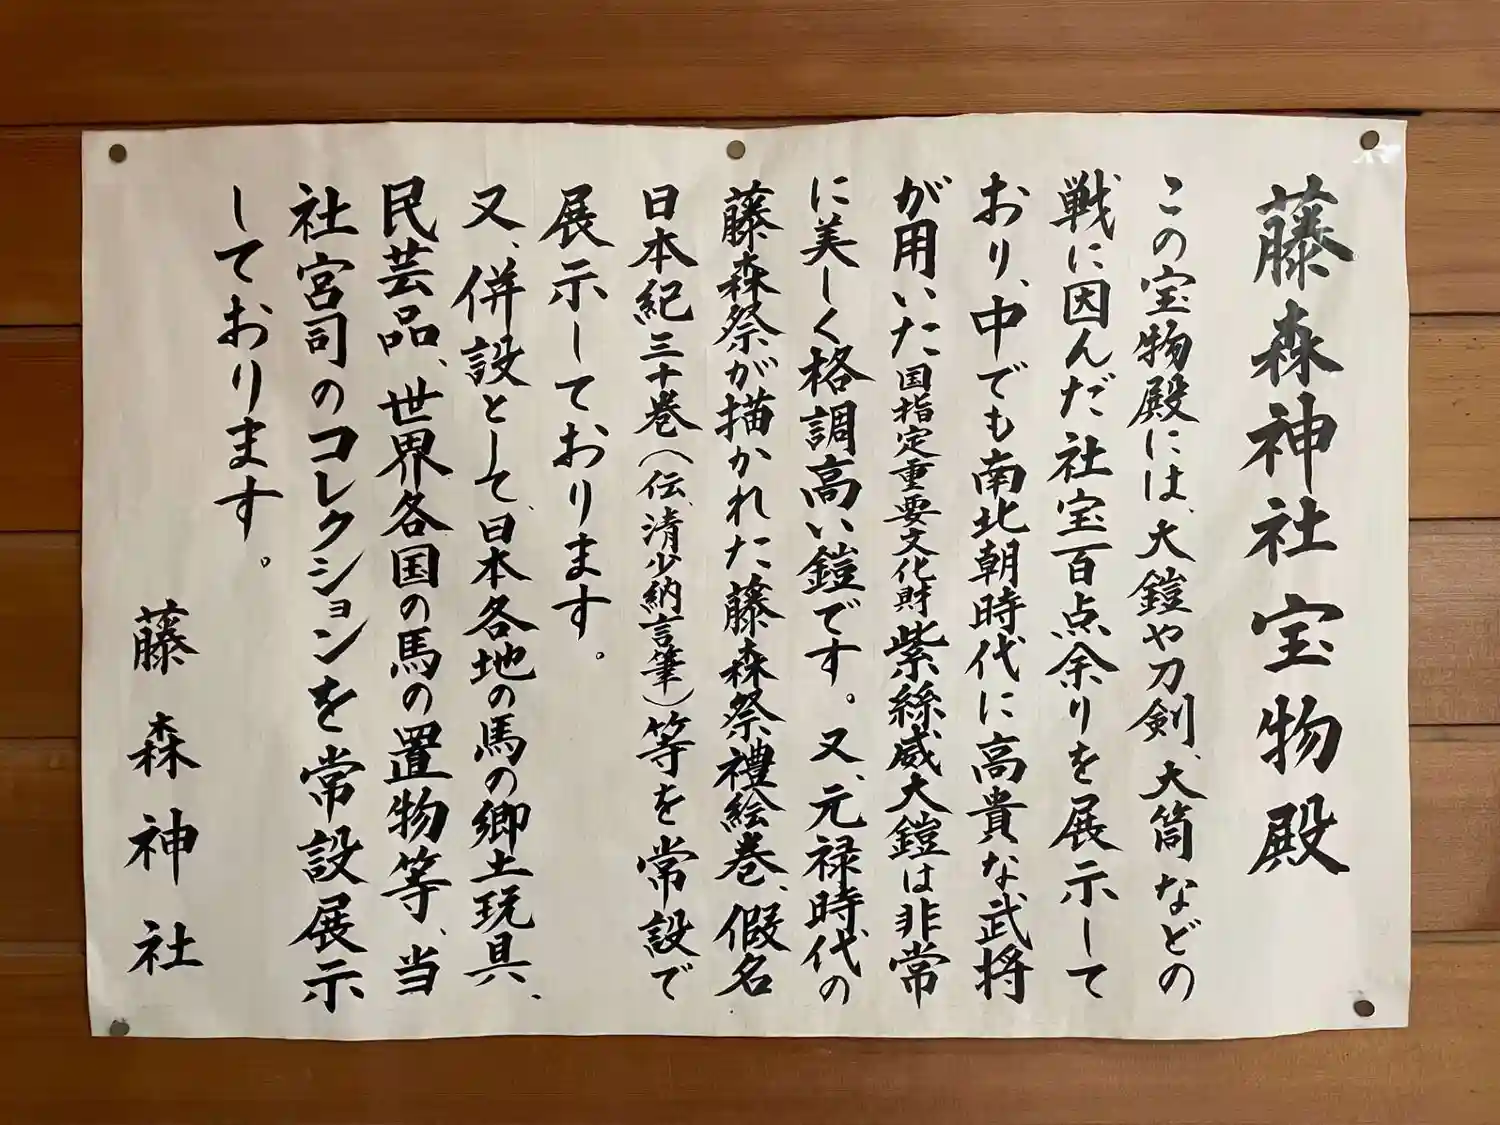 藤森神社宝物殿
この宝物殿には、大鎧や刀剣、大筒などの
戦に因んだ社宝百点余りを展示して
おり、中でも南北朝時代に高貴な武将
が用いた国指定重要文化財紫絲威大鎧は非常
に美しく格調高い鎧です。又、元禄時代の
藤森祭が描かれた藤森祭禮絵巻、假名
日本紀三十巻(伝、清少納言筆)等を常設で
展示しております。
又、併設として、日本各地の馬の郷土玩具、
民芸品、世界各国の馬の置物等、当
社宮司のコレクションを常設展示
しております。
藤森神社